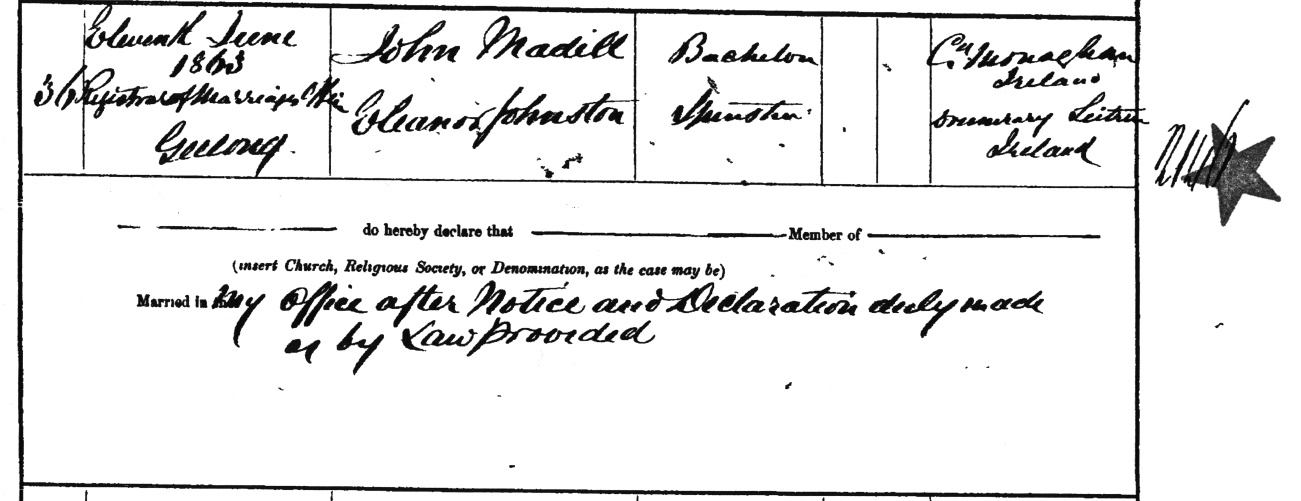 Eleventh June John Madill Bachelor Co Monaghan
1863 Ireland
36 Registrar of Marriages Office Eleanor Johnston Spinster Leitrim
Geelong Ireland
do hereby declare that Member of
(insert Church, Religious Society, or Denomination, as the case may be)
Married in my Office after Notice and Declaration duly made
as by Law provided